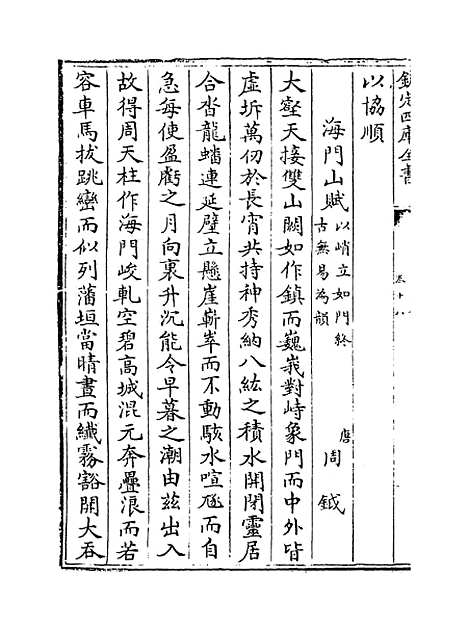 欽定四庫全書
卷十八
以協順
海門山賦以峭立如門終古無易為韻 唐周鉞
大壑天接雙山闕如作鎮而巍峩對峙象門而中外皆
虛坼萬仞於長霄共持神秀納八紘之積水開閉靈居
合沓龍蟠連延壁立懸崖嶄崒而不動駭水喧豗而自
急每使盈虧之月向裏升沉能令早暮之潮由兹出入
故得周天柱作海門峻軋空碧高城混元奔疊浪而若
容車馬拔跳巒而似列藩垣當晴晝而纖霧豁開大吞